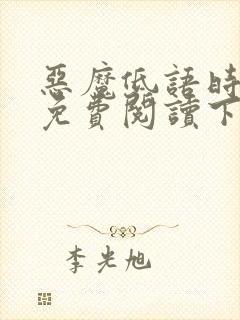 惡魔低語時
免費閱讀下
李光旭